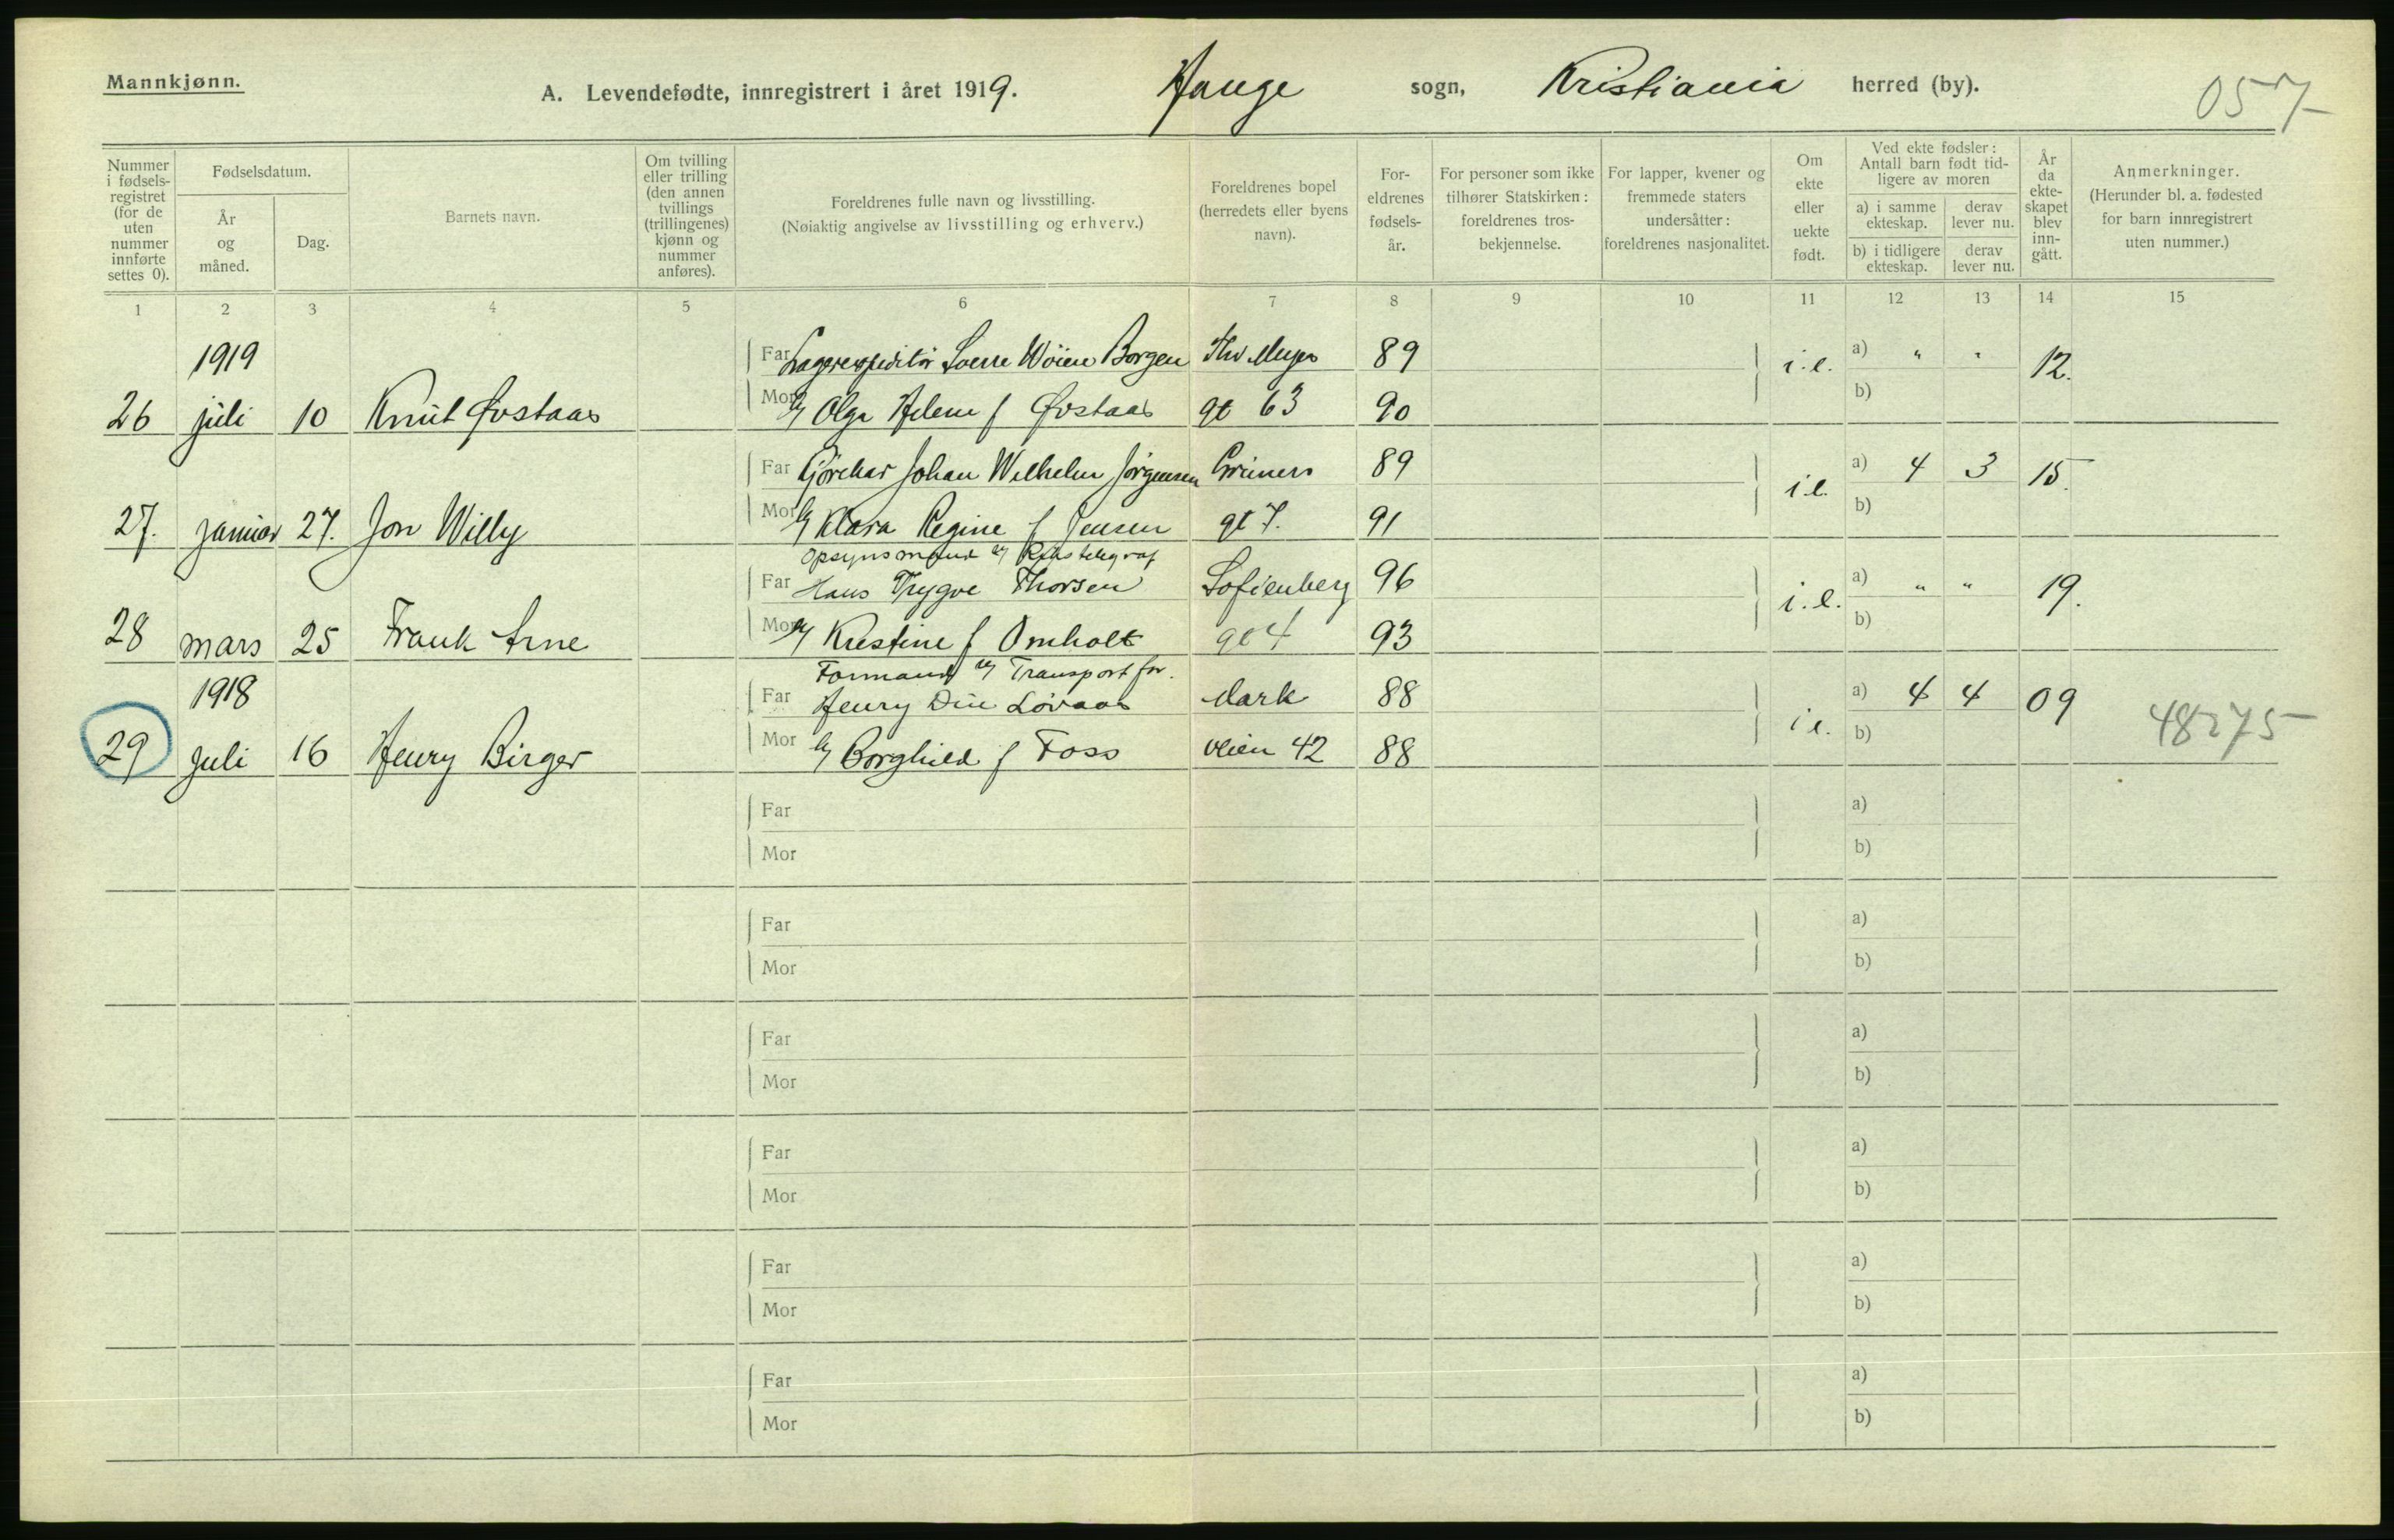 Mannkjønn.
A. Levendefødte, innregistrert i året 1919. Hauge sogn, Kristiania herred (by).
057
Nummer i fødsels-registret (for de uten nummer innførte settes 0).
Fødselsdatum.
År og måned.
Dag.
Barnets navn.
Om tvilling eller trilling (den annen tvillings (trillingenes) kjønn og nummer anføres).
Foreldrenes fulle navn og livsstilling.
(Nøiaktig angivelse av livsstilling og erhverv.)
Foreldrenes bopel (herredets eller byens navn).
For-eldrenes fødsels-år.
For personer som ikke tilhører Statskirken: foreldrenes tros-bekjennelse.
For lapper, kvener og fremmede staters undersåtter: foreldrenes nasjonalitet.
Om ekte eller uekte født.
Ved ekte fødsler: Antall barn født tid-ligere av moren
a) i samme ekteskap.
derav lever nu.
b) i tidligere ekteskap.
derav lever nu.
År da ekte-skapet blev inn-gått.
Anmerkninger.
(Herunder bl. a. fødested for barn innregistrert uten nummer.)
1 2 3 4 5 6 7 8 9 10 11 12 13 14 15
1919 Far Lagerexpeditör Sverre Wöien Borgen Thv Meyers 89 i.e. a) " " 12.
26 juli 10 Knut Øvstaas Mor Olga Helene f Øvstaas gt 63 90 b)
Far Gjörchar Johan Wilhelm Jörgensen Grüners 89 i.e. a) 4 3 15
27. januar 27. Jon Willy Mor Klara Regine f Jensen gt 7. 91 b)
Opsynsmand Rikstelegraf
Far Hans Trygve Thorsen Sofienberg 96 i.e. a) " " 19.
28 mars 25 Frank Arne Mor Kristine f Omholt gt 4 93 b)
Formand Transportfor.
1918 Far Henry Løvaas Mark 88 i e. a) 4 4 09
29 juli 16 Henry Birger Mor Borghild f Foss veien 42 88 b) 48275
Far a)
Mor b)
Far a)
Mor b)
Far a)
Mor b)
Far a)
Mor b)
Far a)
Mor b)
Far a)
Mor b)